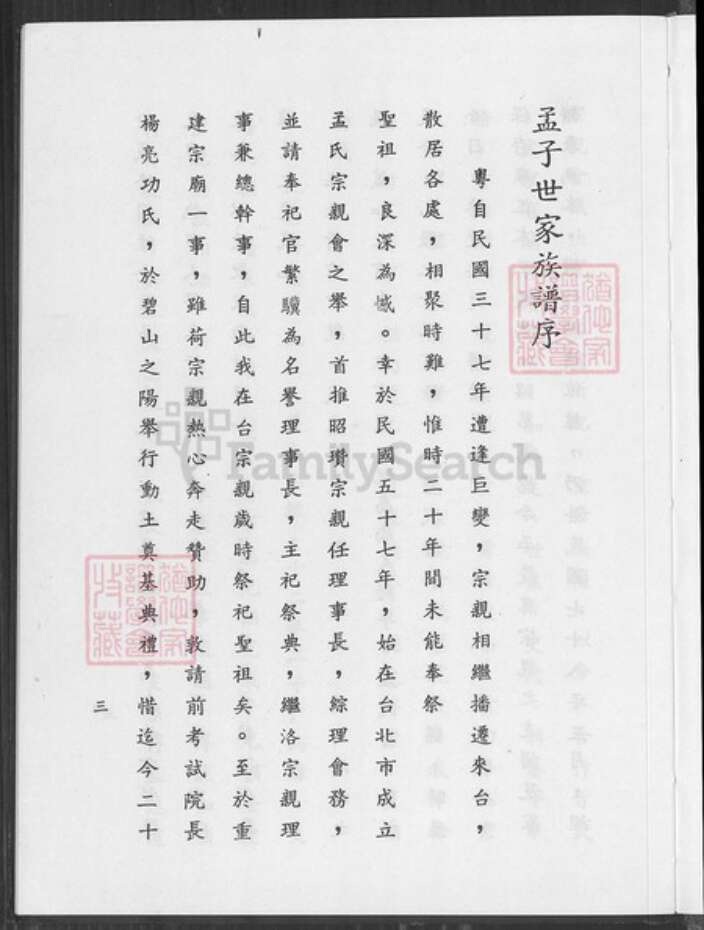 孟子世家族譜序
粵自民國三十七年遭逢巨變，宗親相繼播遷來台，
散居各處，相聚時難，惟時二十年間未能奉祭
聖祖，良深為憾。幸於民國五十七年，始在台北市成立
孟氏宗親會之舉，首推昭瓚宗親任理事長，綜理會務，
並請奉祀官繁驥為名譽理事長，主祀祭典，繼洛宗親理
事兼總幹事，自此我在台宗親歲時祭祀聖祖矣。至於重
建宗廟一事，雖荷宗親熱心奔走贊助，敦請前考試院長
楊亮功氏，於碧山之陽舉行動土奠基典禮，惜迄今二十
三
FamilySearch